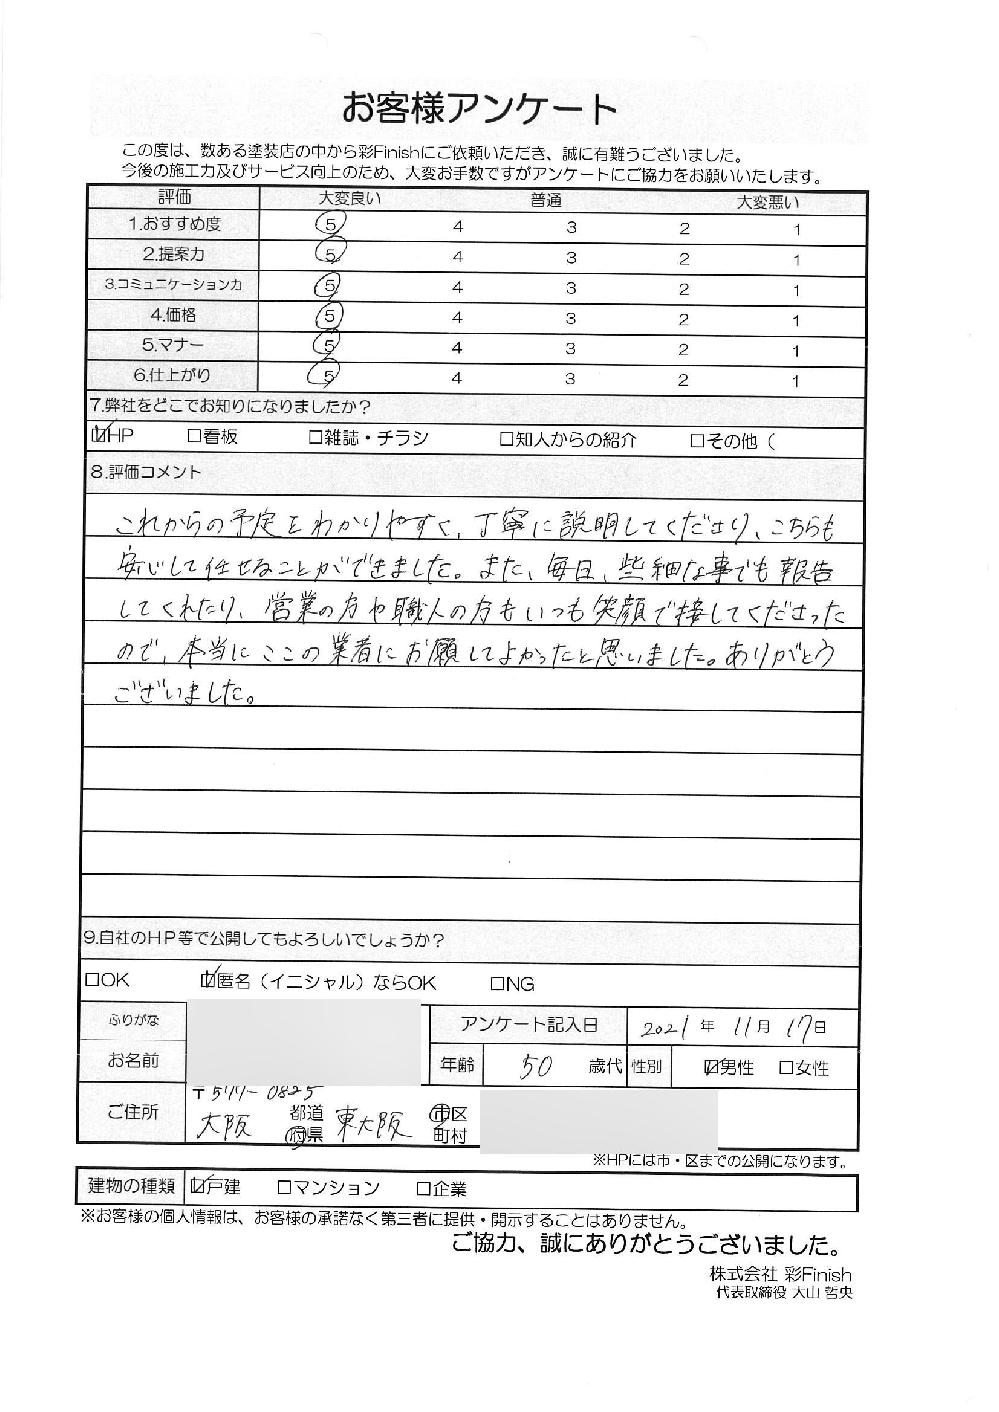 お客様アンケート
この度は、数ある塗装店の中から彩Finishにご依頼いただき、誠に有難うございました。
今後の施工力及びサービス向上のため、大変お手数ですがアンケートにご協力をお願いいたします。
評価 大変良い 普通 大変悪い
1.おすすめ度 5 4 3 2 1
2.提案力 5 4 3 2 1
3.コミュニケーション力 5 4 3 2 1
4.価格 5 4 3 2 1
5.マナー 5 4 3 2 1
6.仕上がり 5 4 3 2 1
7.弊社をどこでお知りになりましたか?
☑HP □看板 □雑誌・チラシ □知人からの紹介 □その他(
8.評価コメント
これからの予定をわかりやすく、丁寧に説明してくださり、こちらも
安心して任せることができました。また、毎日、些細な事でも報告
してくれたり、営業の方や職人の方もいつも笑顔で接してくださった
ので、本当にここの業者にお願してよかったと思いました。ありがとう
ございました。
9.自社のHP等で公開してもよろしいでしょうか?
□OK ☑匿名(イニシャル)ならOK □NG
ふりがな アンケート記入日 2021年 11月 17日
お名前 年齢 50 歳代 性別 ☑男性 □女性
〒577-0825
ご住所 大阪 都道府県 東大阪 市区町村
※HPには市・区までの公開になります。
建物の種類 ☑戸建 □マンション □企業
※お客様の個人情報は、お客様の承諾なく第三者に提供・開示することはありません。
ご協力、誠にありがとうございました。
株式会社 彩Finish
代表取締役 大山 哲央